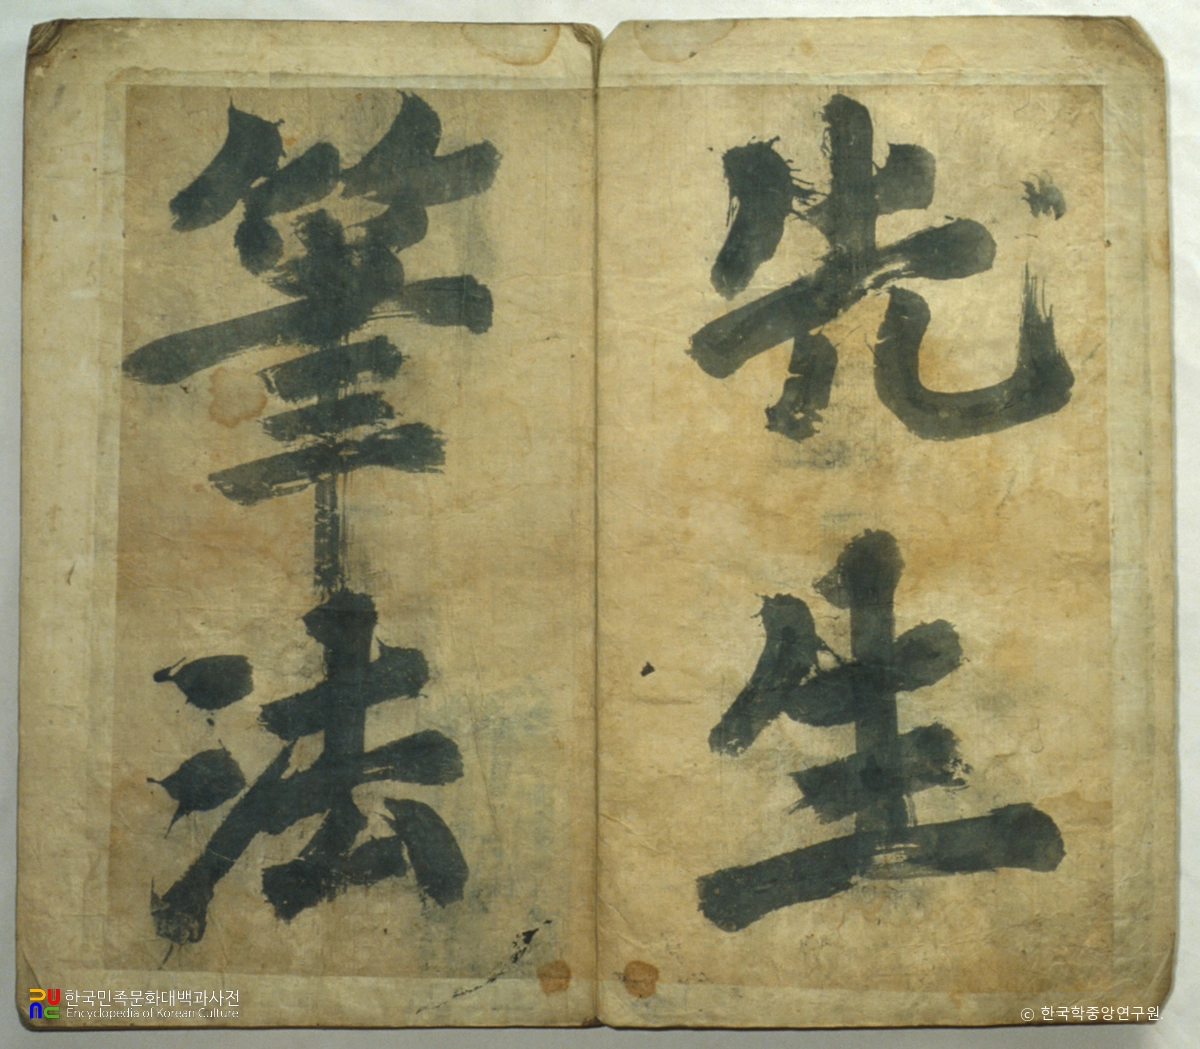 先生
筆法
한국민족문화대백과사전
Encyclopedia of Korean Culture
ⓒ 한국학중앙연구원.